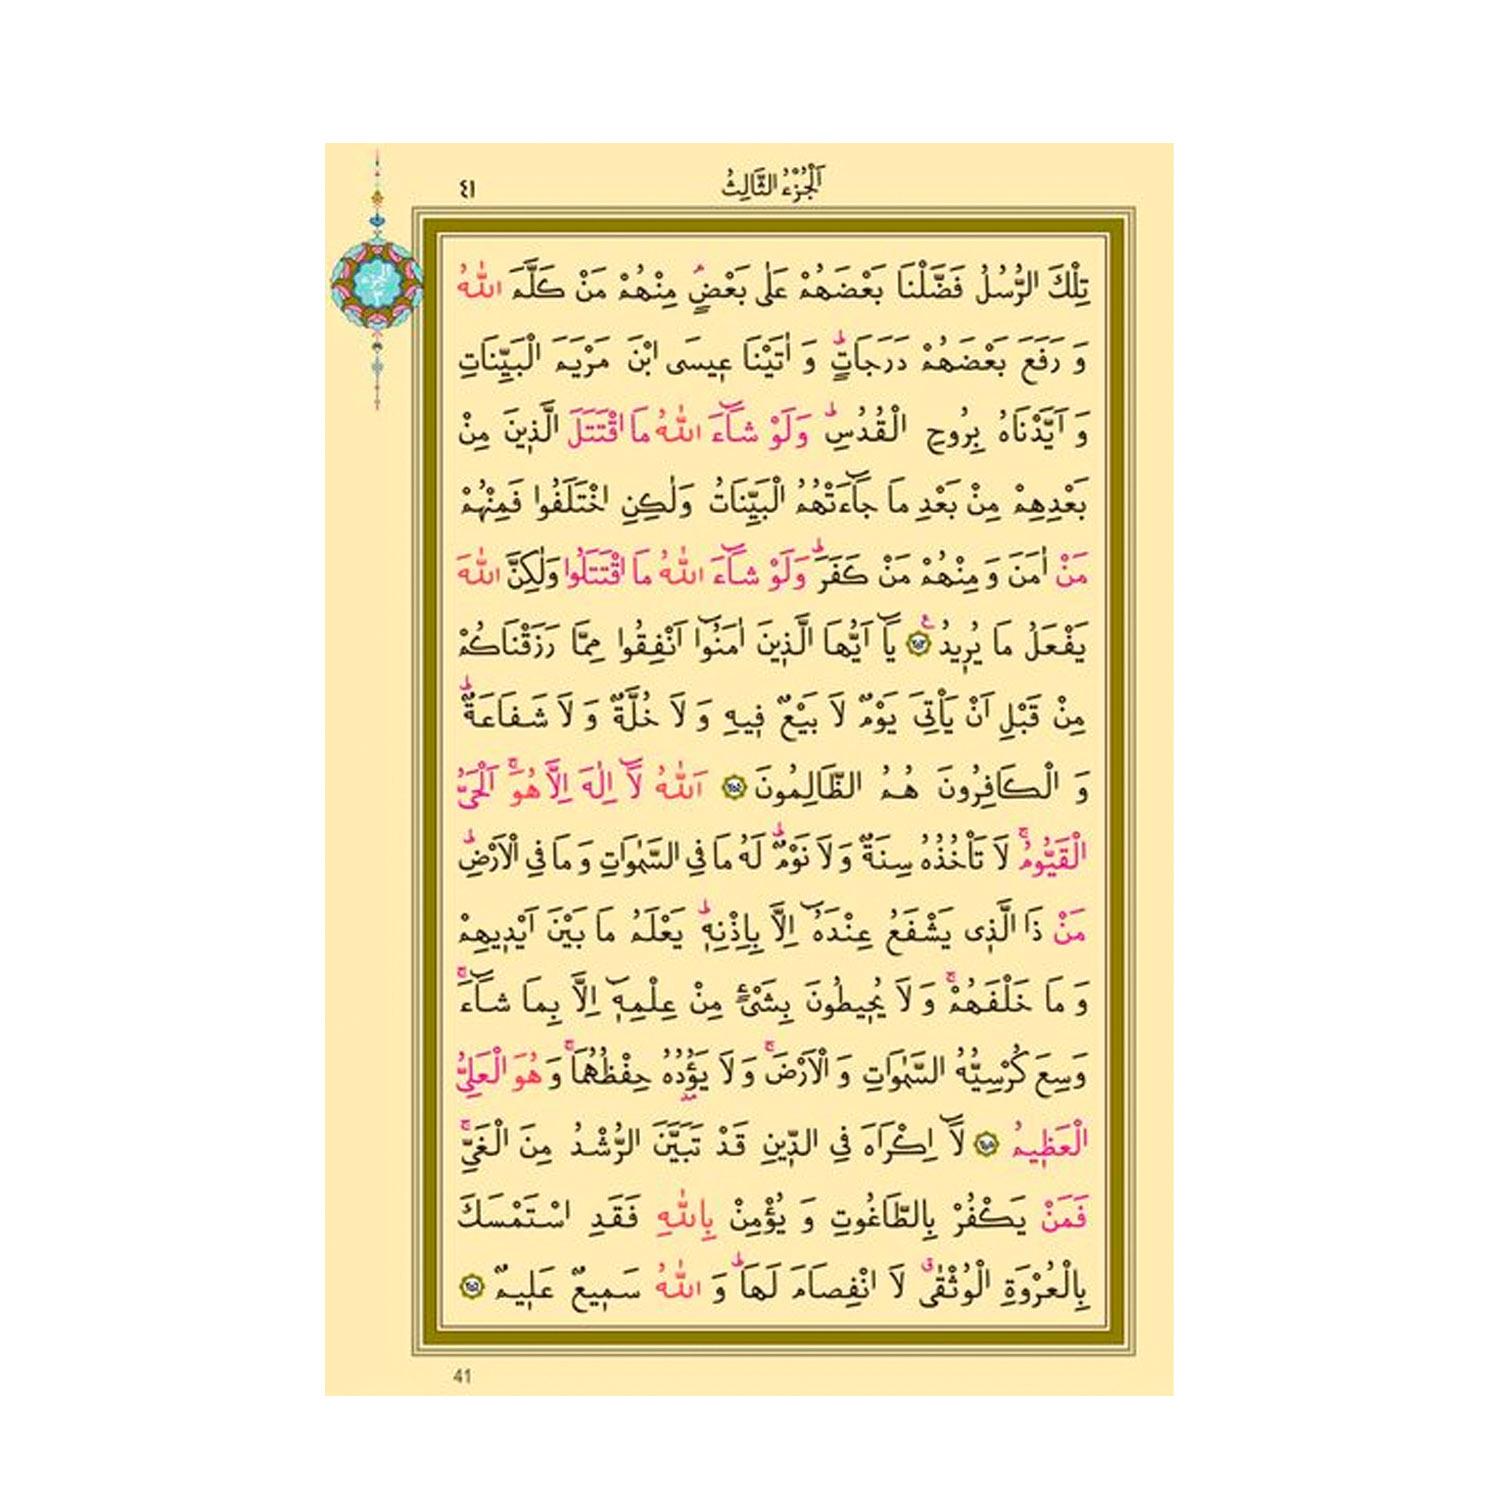 ٤١
اَلْجُزْءُ الثَّالِثُ
الجزء
٣
تِلْكَ الرُّسُلُ فَضَّلْنَا بَعْضَهُمْ عَلٰى بَعْضٍۢ مِنْهُمْ مَنْ كَلَّمَ اللّٰهُ
وَ رَفَعَ بَعْضَهُمْ دَرَجَاتٍؕ وَ اٰتَيْنَا عٖيسَى ابْنَ مَرْيَمَ الْبَيِّنَاتِ
وَ اَيَّدْنَاهُ بِرُوحِ الْقُدُسِؕ وَلَوْ شَٓاءَ اللّٰهُ مَا اقْتَتَلَ الَّذٖينَ مِنْ
بَعْدِهِمْ مِنْ بَعْدِ مَا جَٓاءَتْهُمُ الْبَيِّنَاتُ وَلٰكِنِ اخْتَلَفُوا فَمِنْهُمْ
مَنْ اٰمَنَ وَ مِنْهُمْ مَنْ كَفَرَؕ وَلَوْ شَٓاءَ اللّٰهُ مَا اقْتَتَلُوا وَلٰكِنَّ اللّٰهَ
يَفْعَلُ مَا يُرٖيدُ ع ﴿٢٥٣﴾ يَٓا اَيُّهَا الَّذٖينَ اٰمَنُٓوا اَنْفِقُوا مِمَّا رَزَقْنَاكُمْ
مِنْ قَبْلِ اَنْ يَأْتِىَ يَوْمٌ لَا بَيْعٌ فٖيهِ وَ لَا خُلَّةٌ وَ لَا شَفَاعَةٌؕ
وَ الْكَافِرُونَ هُمُ الظَّالِمُونَ ﴿٢٥٤﴾ اَللّٰهُ لَٓا اِلٰهَ اِلَّا هُوَۚ اَلْحَىُّ
الْقَيُّومُۚ لَا تَأْخُذُهُ سِنَةٌ وَ لَا نَوْمٌؕ لَهُ مَا فِى السَّمٰوَاتِ وَ مَا فِى الْاَرْضِؕ
مَنْ ذَا الَّذٖى يَشْفَعُ عِنْدَهُٓ اِلَّا بِاِذْنِهٖؕ يَعْلَمُ مَا بَيْنَ اَيْدٖيهِمْ
وَ مَا خَلْفَهُمْۚ وَ لَا يُحٖيطُونَ بِشَىْءٍ مِنْ عِلْمِهٖٓ اِلَّا بِمَا شَٓاءَۚ
وَسِعَ كُرْسِيُّهُ السَّمٰوَاتِ وَ الْاَرْضَۚ وَ لَا يَؤُدُهُ حِفْظُهُمَاۚ وَ هُوَ الْعَلِىُّ
الْعَظٖيمُ ﴿٢٥٥﴾ لَٓا اِكْرَاهَ فِى الدّٖينِ قَدْ تَبَيَّنَ الرُّشْدُ مِنَ الْغَىِّۚ
فَمَنْ يَكْفُرْ بِالطَّاغُوتِ وَ يُؤْمِنْ بِاللّٰهِ فَقَدِ اسْتَمْسَكَ
بِالْعُرْوَةِ الْوُثْقٰىࣗ لَا انْفِصَامَ لَهَاؕ وَ اللّٰهُ سَمٖيعٌ عَلٖيمٌ ﴿٢٥٦﴾
41